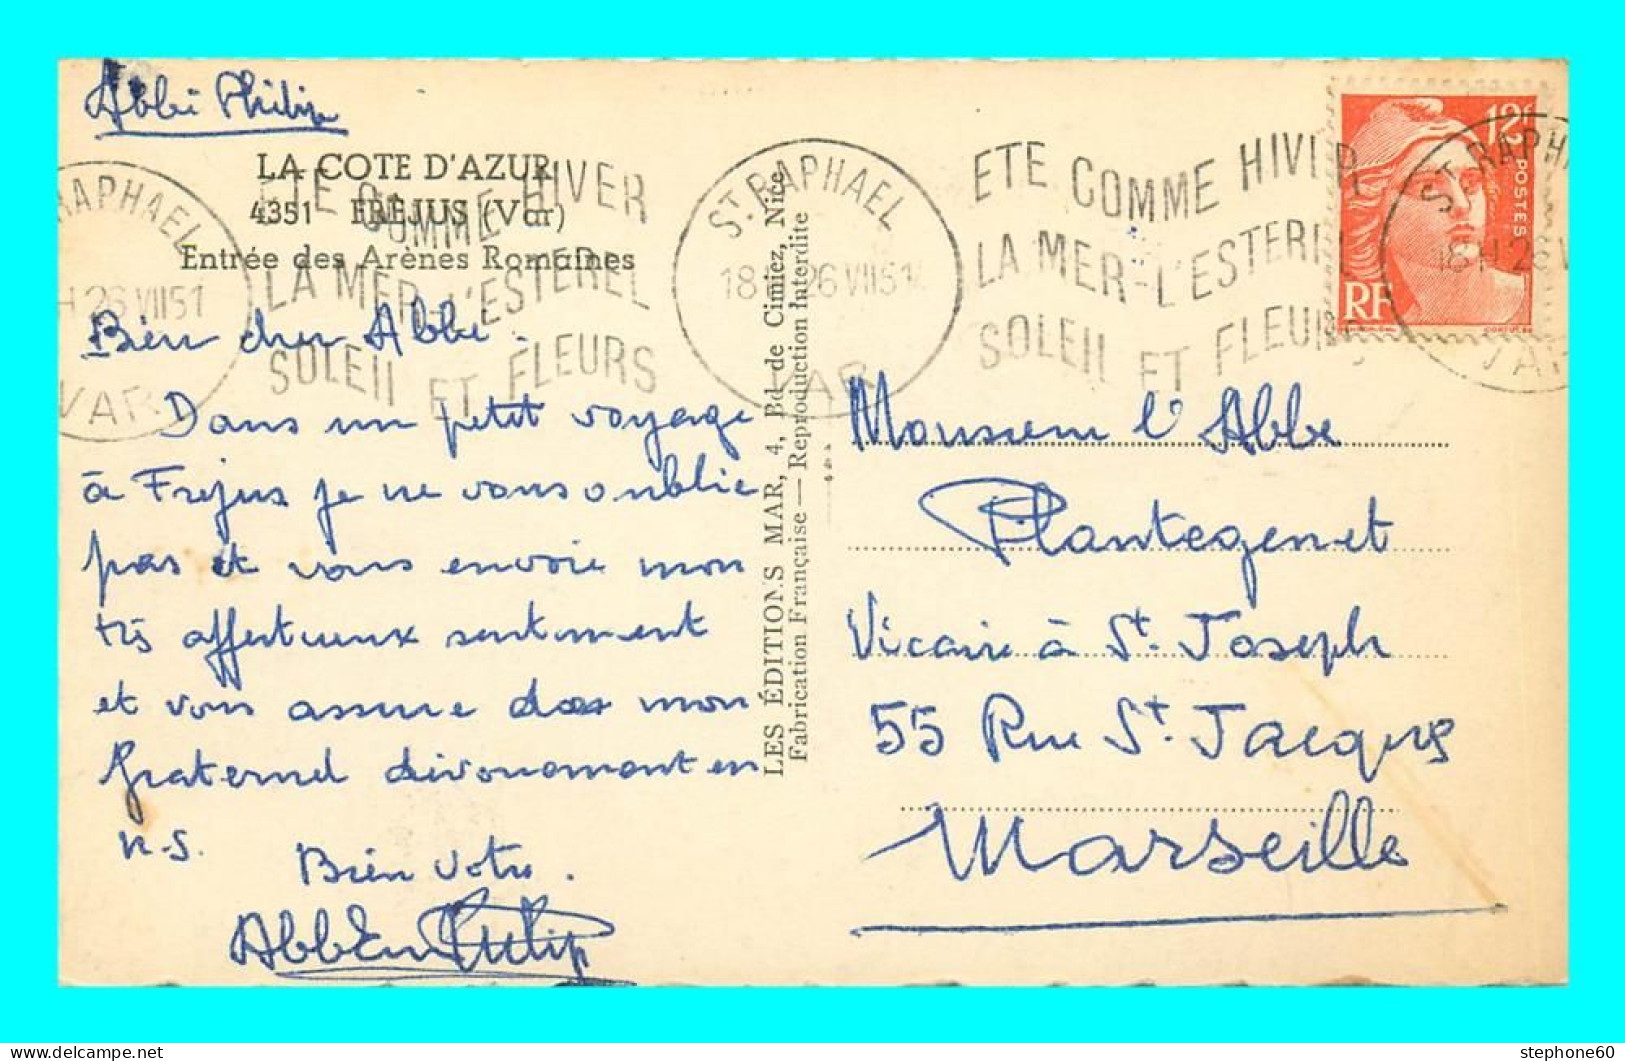 Abbé Philip
LA COTE D'AZUR
4351 FREJUS (Var)
Entrée des Arènes Romaines
ST. RAPHAEL
H 26 VII 51
VAR
ETE COMME HIVER
LA MER - L'ESTEREL
SOLEIL ET FLEURS
ST. RAPHAEL
18 H 26 VII 51
VAR
ETE COMME HIVER
LA MER - L'ESTEREL
SOLEIL ET FLEURS
ST. RAPHA
18 H 26 V
VAR
12F
POSTES
RF
Bien cher Abbé.
Dans un petit voyage
à Frejus je ne vous oublie
pas et vous envoie mon
très affectueux sentiment
et vous assure de mon
fraternel dévouement en
N.S.
Bien votre.
Philip
LES ÉDITIONS MAR, 4, Bd de Cimiez, Nice
Fabrication Française — Reproduction Interdite
Monsieur l'Abbé
Plantegenet
Vicaire à St. Joseph
55 Rue St. Jacques
Marseille
stephone60